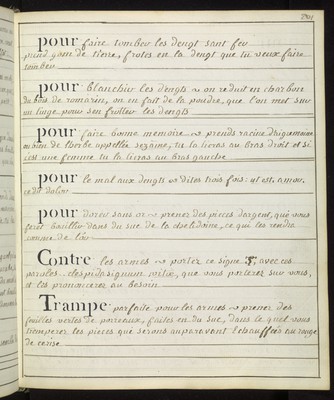 pour faire tomber les dengt sant feu
prend game de lierre, frotes en la dengt que tu veux faire
tomber
pour blanchir les dengts on reduit en charbon
du bois de romarin, on en fait de la poudre, que l'on met sur
un linge pour s'en frotter les dengts
pour faire bonne memoire prends racine
ou bien de lherbe appellée sezame, tu la lieras au bras droit et si
c'est une femme tu la lieras au bras gauche
pour le mal aux dengts dites trois fois:
pour dorer sans or prenez des pieces dargent, que vous
feret bouillir dans du suc de la chelidoine, ce qui les rendra
comme de l'or
Contre les armes portez ce signe avec ces
paroles que vous porterez sur vous,
et les prononcerez au besoin
Trampe parfaite pour les armes prenez des
feuilles vertes de porreaux, faites en du suc, dans le quel vous
tremperer les pieces qui seront auparavant l'echauffées au rouge
de cerise